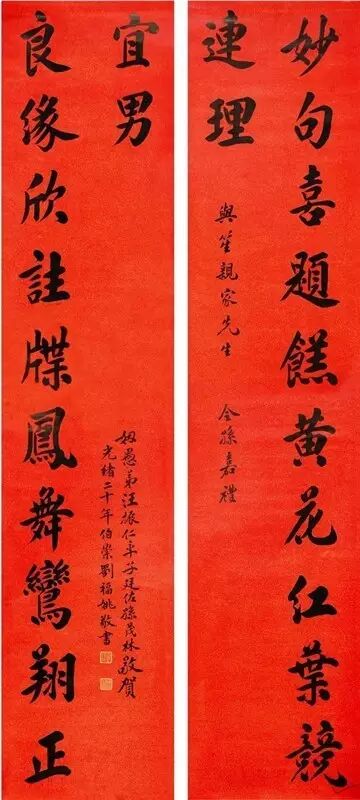 妙句喜題餻黃花紅葉競
連理
與笙親家先生 令孫嘉禮
良緣欣註牒鳳舞鸞翔正
宜男
姻愚弟汪振仁率子廷佐孫茂林敬賀
光緒二十年伯崇劉福姚敬書